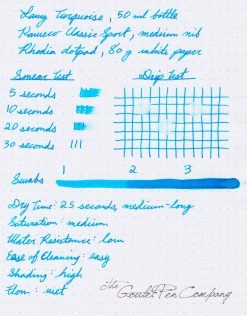 Lamy Turquoise, 50 ml bottle
Kaweco Classic Sport, medium nib
Rhodia dotpad, 80 g white paper
Smear Test
Drip Test
5 seconds
10 seconds
20 seconds
30 seconds
Swabs
1 2 3
Dry Time: 25 seconds, medium-long
Saturation: medium
Water Resistance: low
Ease of Cleaning: easy
Shading: high
Flow: wet
The Goulet Pen Company